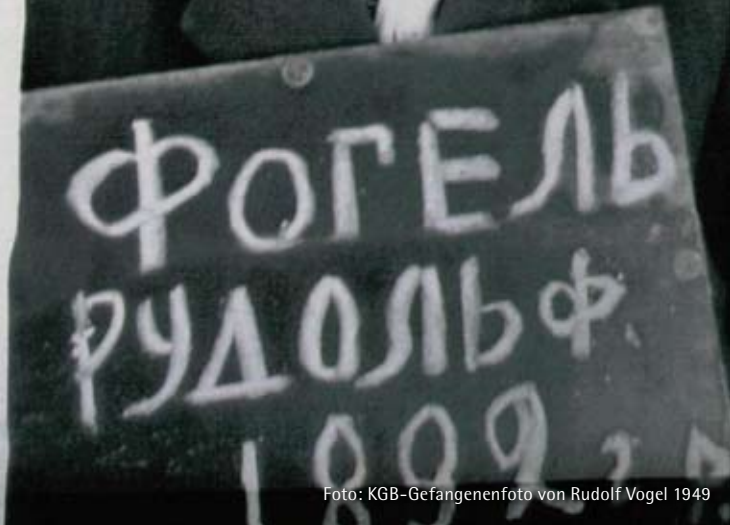 ФОГЕЛЬ
РУДОЛЬФ.
Foto: KGB-Gefangenenfoto von Rudolf Vogel 1949